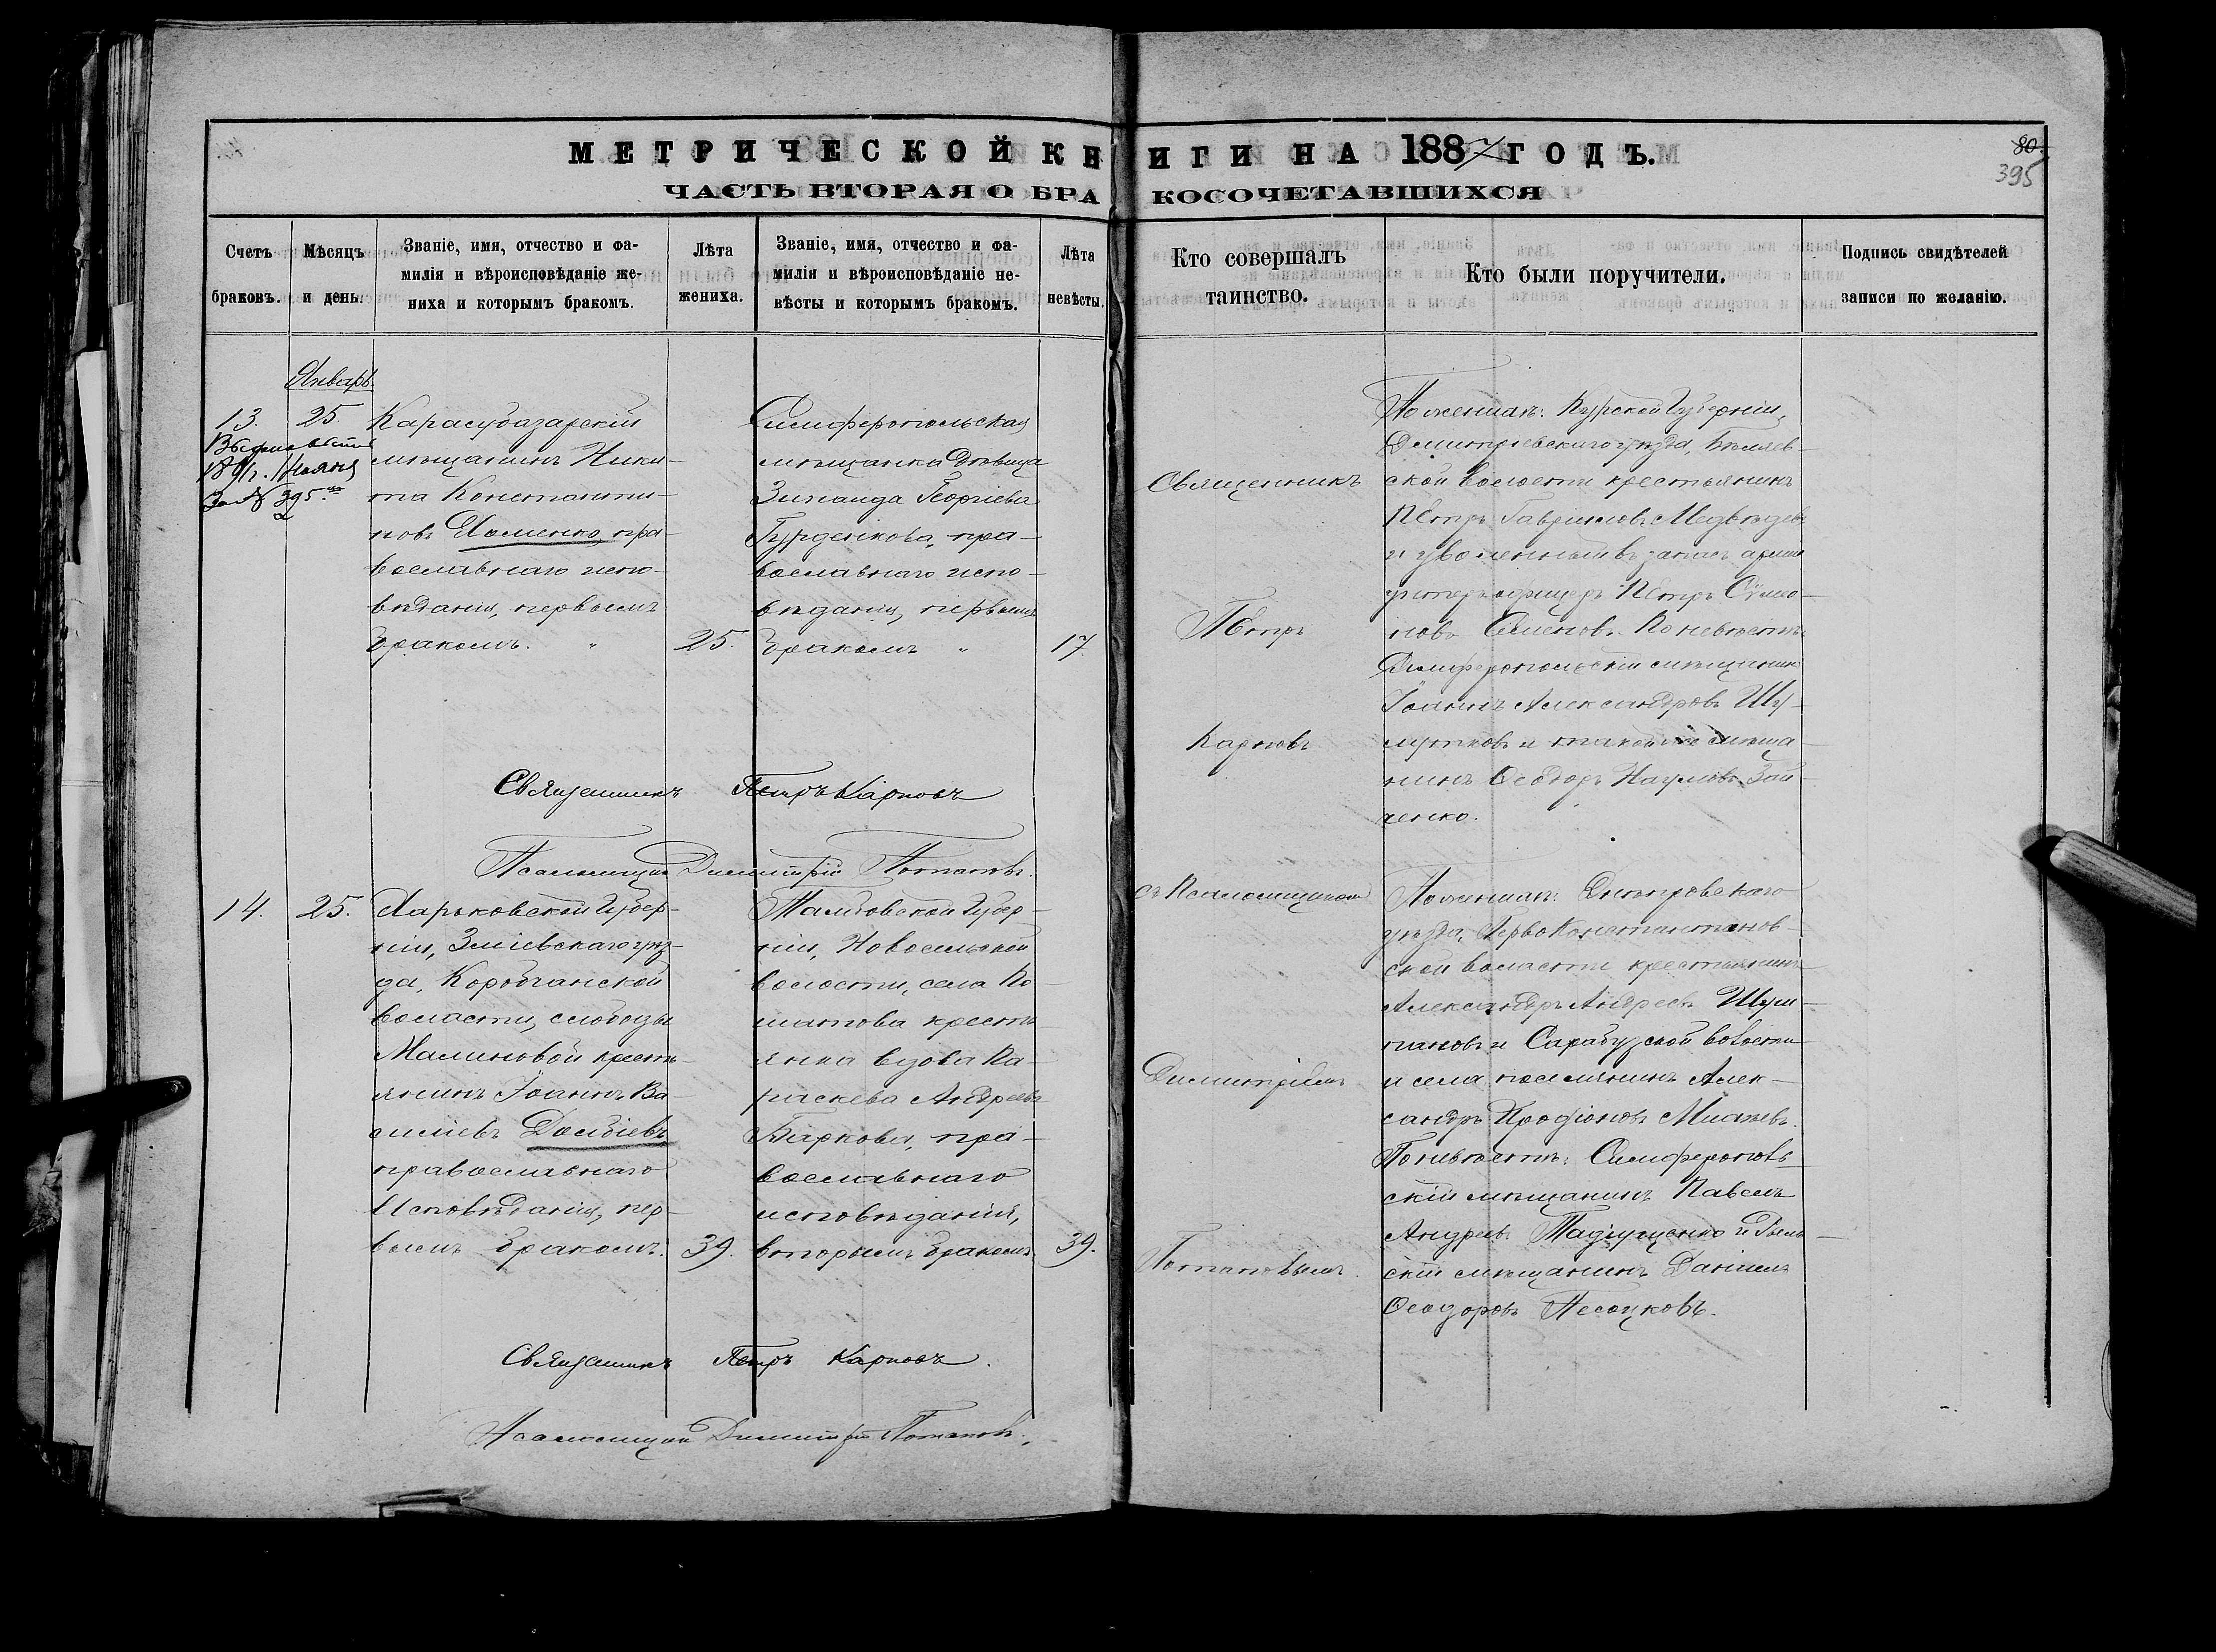 МЕТРИЧЕСКОЙ КНИГИ НА 1887 ГОДЪ.
80.
395
ЧАСТЬ ВТОРАЯ О БРАКОСОЧЕТАВШИХСЯ
Счетъ браковъ.
Мѣсяцъ и день.
Званіе, имя, отчество и фа-
милія и вѣроисповѣданіе же-
ниха и которымъ бракомъ.
Лѣта жениха.
Званіе, имя, отчество и фа-
милія и вѣроисповѣданіе не-
вѣсты и которымъ бракомъ.
Лѣта невѣсты.
Кто совершалъ таинство.
Кто были поручители.
Подпись свидѣтелей
записи по желанію.
Январь
13.
25.
За № 395
Карасубазарскій
мѣщанинъ Ники-
та Константи-
новъ Хоменко, пра-
вославнаго испо-
вѣданія, первымъ
бракомъ. "
25.
Симферопольская
мѣщанка Дѣвица
Зинаида Георгіева
православнаго испо-
вѣданія, первымъ
бракомъ "
17
Священникъ
Пётръ
Карповъ
съ Псаломщикомъ
Димитріемъ
Потаповымъ.
По женихѣ: Курской Губерніи,
Дмитріевскаго уѣзда, Бѣляев-
ской волости крестьянинъ
Пётръ Гавриловъ Медвѣдевъ
и уволенный въ запасъ арміи
унтеръ офицеръ Пётръ Сѵмо-
новъ Семеновъ. По невѣстѣ:
Симферопольскій мѣщанинъ
Іоаннъ Александровъ Шу-
мѣща-
нинъ Ѳеодоръ Наумовъ Зай-
ченко.
Священникъ Петръ Карповъ
Псаломщикъ Димитрій Потаповъ.
14.
25.
Харьковской Губер-
ніи, Зміевскаго уѣз-
да, Коробчанской
волости, слободы
Малиновой кресть-
янинъ Іоаннъ Ва-
силіевъ Долбіевъ
православнаго
исповѣданія, пер-
вымъ бракомъ.
39.
Тамбовской Губер-
ніи, Новосельской
волости, села По-
тапова кресть-
янка вдова Па-
раскева Андреева
Баркова, пра-
вославнаго
исповѣданія,
вторымъ бракомъ
39.
По женихѣ: Днѣпровскаго
уѣзда, Перво Константинов-
ской волости крестьянинъ
Александръ Андреевъ Шум-
и Сарабузской волости
и села поселянинъ Алек-
сандръ
По невѣстѣ: Симферополь-
скій мѣщанинъ Павелъ
Андреевъ
скій мѣщанинъ Даніилъ
Ѳеодоровъ Песоцковъ.
Священникъ Петръ Карповъ.
Псаломщикъ Димитрій Потаповъ.